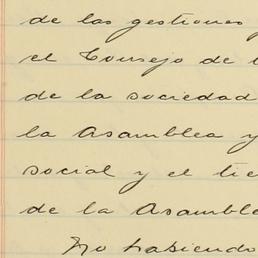 de las gestiones
el Consejo de
de la sociedad
la Asamblea y
social y el tie
de la Asamble
No habiendo